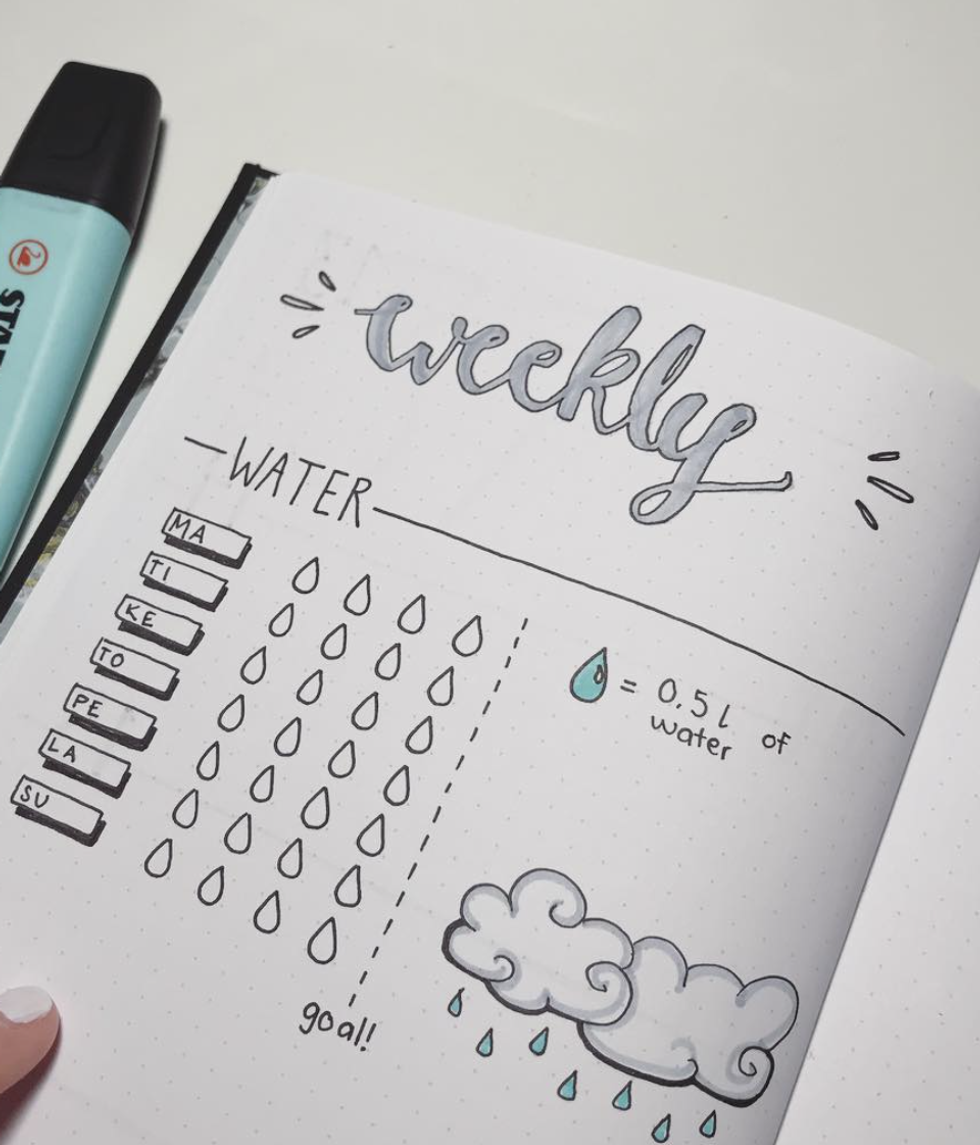 weekly
WATER
MA
TI
KE
TO
PE
LA
SU
= 0.5 l of
water
goal!
STA